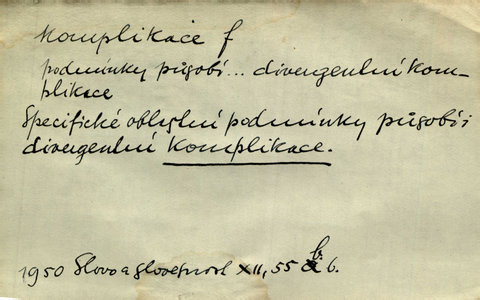 Komplikace f
podmínky působí... divergentní kom-
plikace
Specifické oblastní podmínky působí i
divergentní komplikace.
1950 Slovo a slovesnost XII, 55 b. 6.